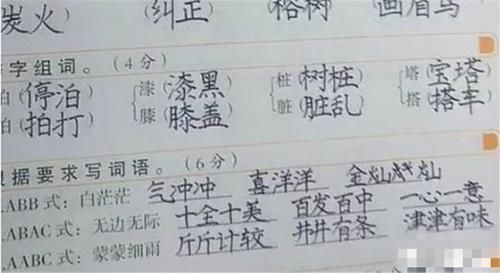 炭火 (纠正) (榕树) (画眉鸟)
字组词。(4分)
泊(停泊) {漆(漆黑) {桩(树桩) {塔(宝塔)
泊(拍打) {膝(膝盖) {脏(脏乱) {搭(搭车)
根据要求写词语。(6分)
ABB式：白茫茫 气冲冲 喜洋洋 金灿灿
ABAC式：无边无际 十全十美 百发百中 一心一意
AABC式：蒙蒙细雨 斤斤计较 井井有条 津津有味